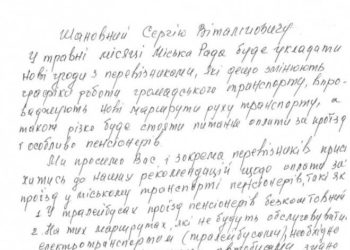 Шановний Сергію Віталійовичу
У травні місяці Міська Рада буде укладати
нові угоди з перевізниками, які дещо змінють
графіки роботи громадського транспорту, впро-
ваджують нові маршрути руху транспорту, а
також різко буде стояти питання оплати за проїзд
особливо пенсіонерів.
Ми просимо Вас, і зокрема перевізників прис
хитись до наших рекомендацій щодо оплати за
проїзд у міському транспорті пенсіонерів, такі як
1. У тралейбусах проїзд пенсіонерів безкоштовний
2. На тих маршрутах, які не будуть обслуговувать
електротранспортом (тралейбусами) необхідно
автобусами